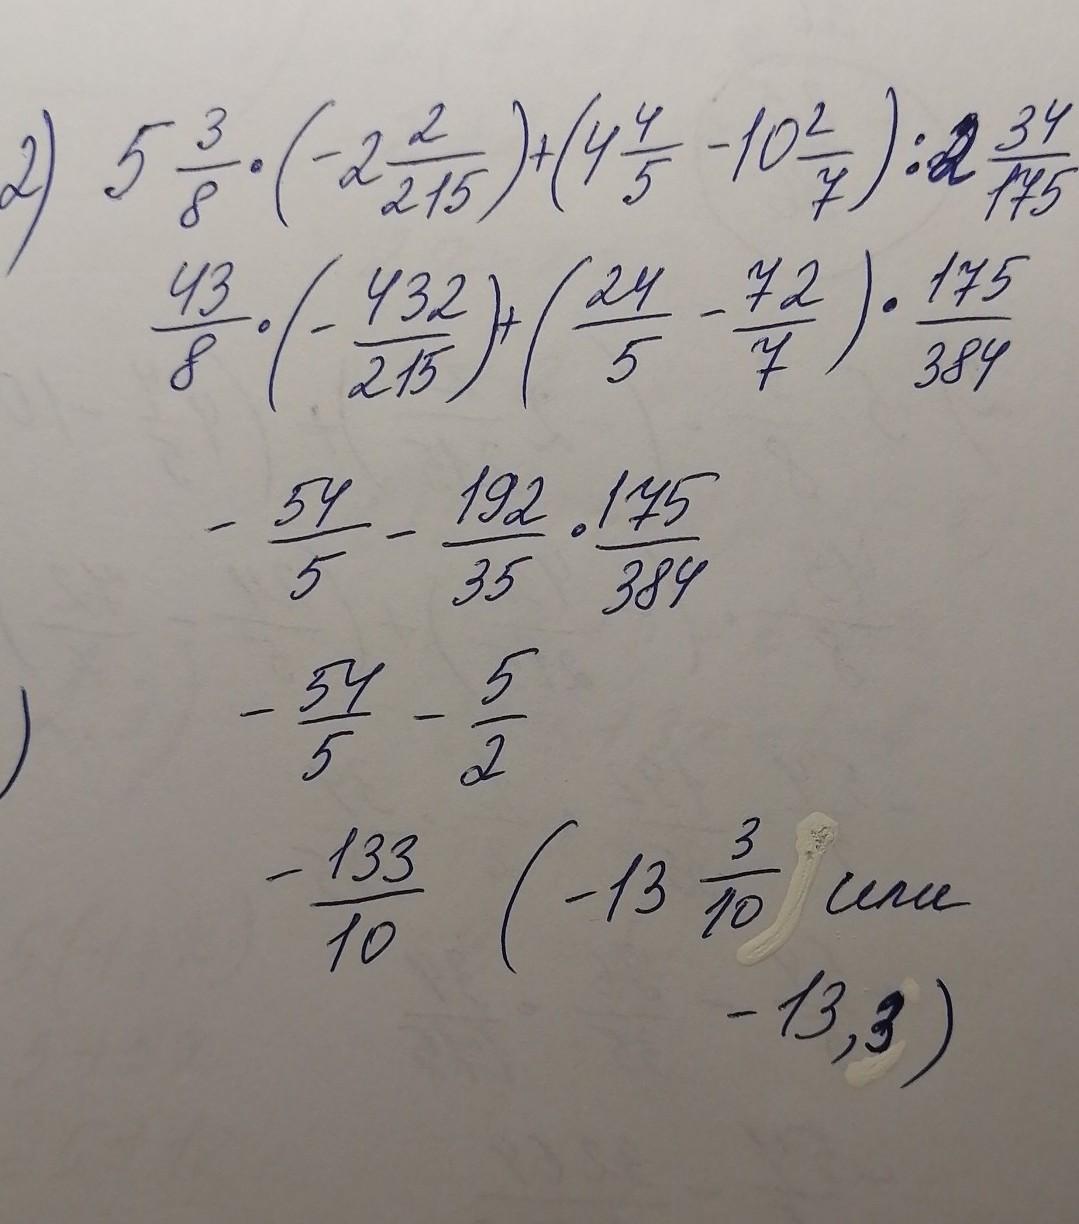 2) 5 3/8 · (-2 2/215) + (4 4/5 - 10 2/7) : 2 34/175
43/8 · (- 432/215) + (24/5 - 72/7) · 175/384
- 54/5 - 192/35 · 175/384
) - 54/5 - 5/2
- 133/10 (-13 3/10 или
-13,3)